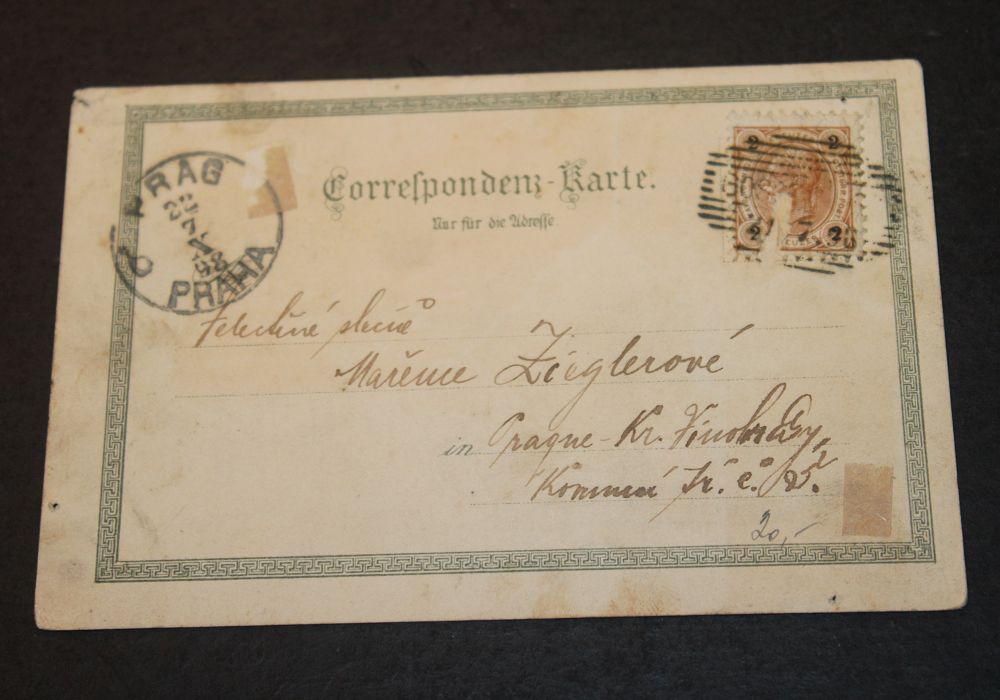 Correspondenz-Karte.
Nur für die Adresse
2 2
2 2
PRAG
23 7
98
PRAHA
slečně
Mařence Zieglerové
in Prague-Kr. Vinohrady,
tř. č.
20,-